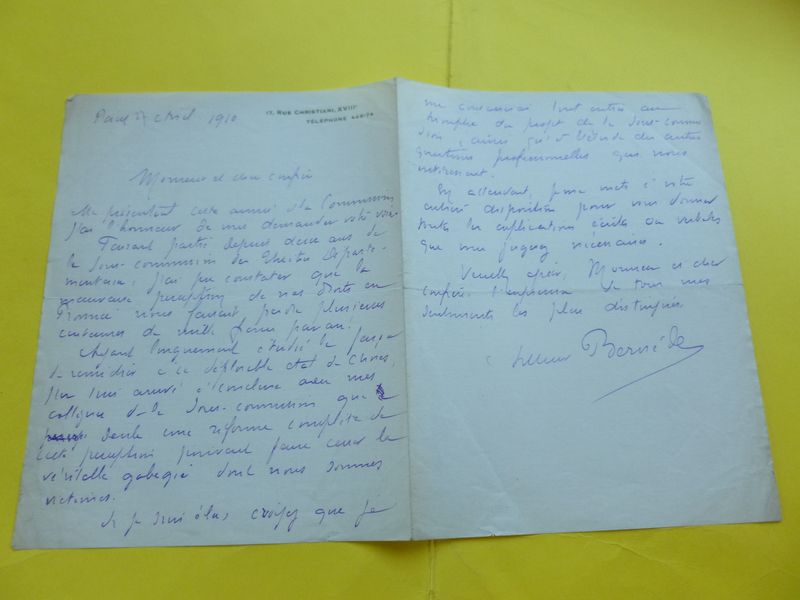 17, RUE CHRISTIANI, XVIIIe
TÉLÉPHONE
Paris 1910
Monsieur et cher confrère
Me présentant cette année à la Commission
j'ai l'honneur de vous demander votre voix.
Faisant partie depuis deux ans de
la Sous-commission des Théâtres Départe-
mentaux, j'ai pu constater que la
mauvaise perception de nos droits en
Province nous faisait perdre plusieurs
centaines de mille francs par an.
Ayant longuement étudié la façon
de remédier à ce déplorable état de choses,
j'en suis arrivé à conclure avec mes
collègues de la Sous-commission que
seule une réforme complète de
cette perception pouvait faire cesser la
véritable gabegie dont nous sommes
victimes.
Si je suis élu, croyez que je
me consacrerai tout entier au
triomphe du projet de la Sous-commis
sion, ainsi qu'à l'étude des autres
questions professionnelles qui nous
intéressent.
En attendant, je me mets à votre
entière disposition pour vous donner
toutes les explications écrites ou verbales
que vous jugerez nécessaires.
Veuillez agréer, Monsieur et cher
confrère, l'expression de tous mes
sentiments les plus distingués
Bernède